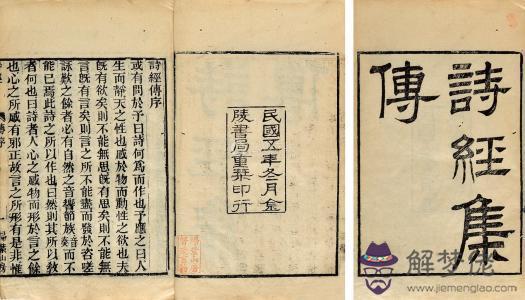 詩經集
傳
民國五年冬月金
陵書局重栞印行
詩經傳序
或有問於予曰詩何為而作也予應之曰人
生而靜天之性也感於物而動性之欲也夫
既有欲矣則不能無思既有思矣則不能無
言既有言矣則言之所不能盡而發於咨嗟
詠歎之餘者必有自然之音響節族奏而不
能已焉此詩之所以作也曰然則其所以教
者何也曰詩者人心之感物而形於言之餘
也心之所感有邪正故言之所形有是非惟
解梦佬
www.jiemenglao.com